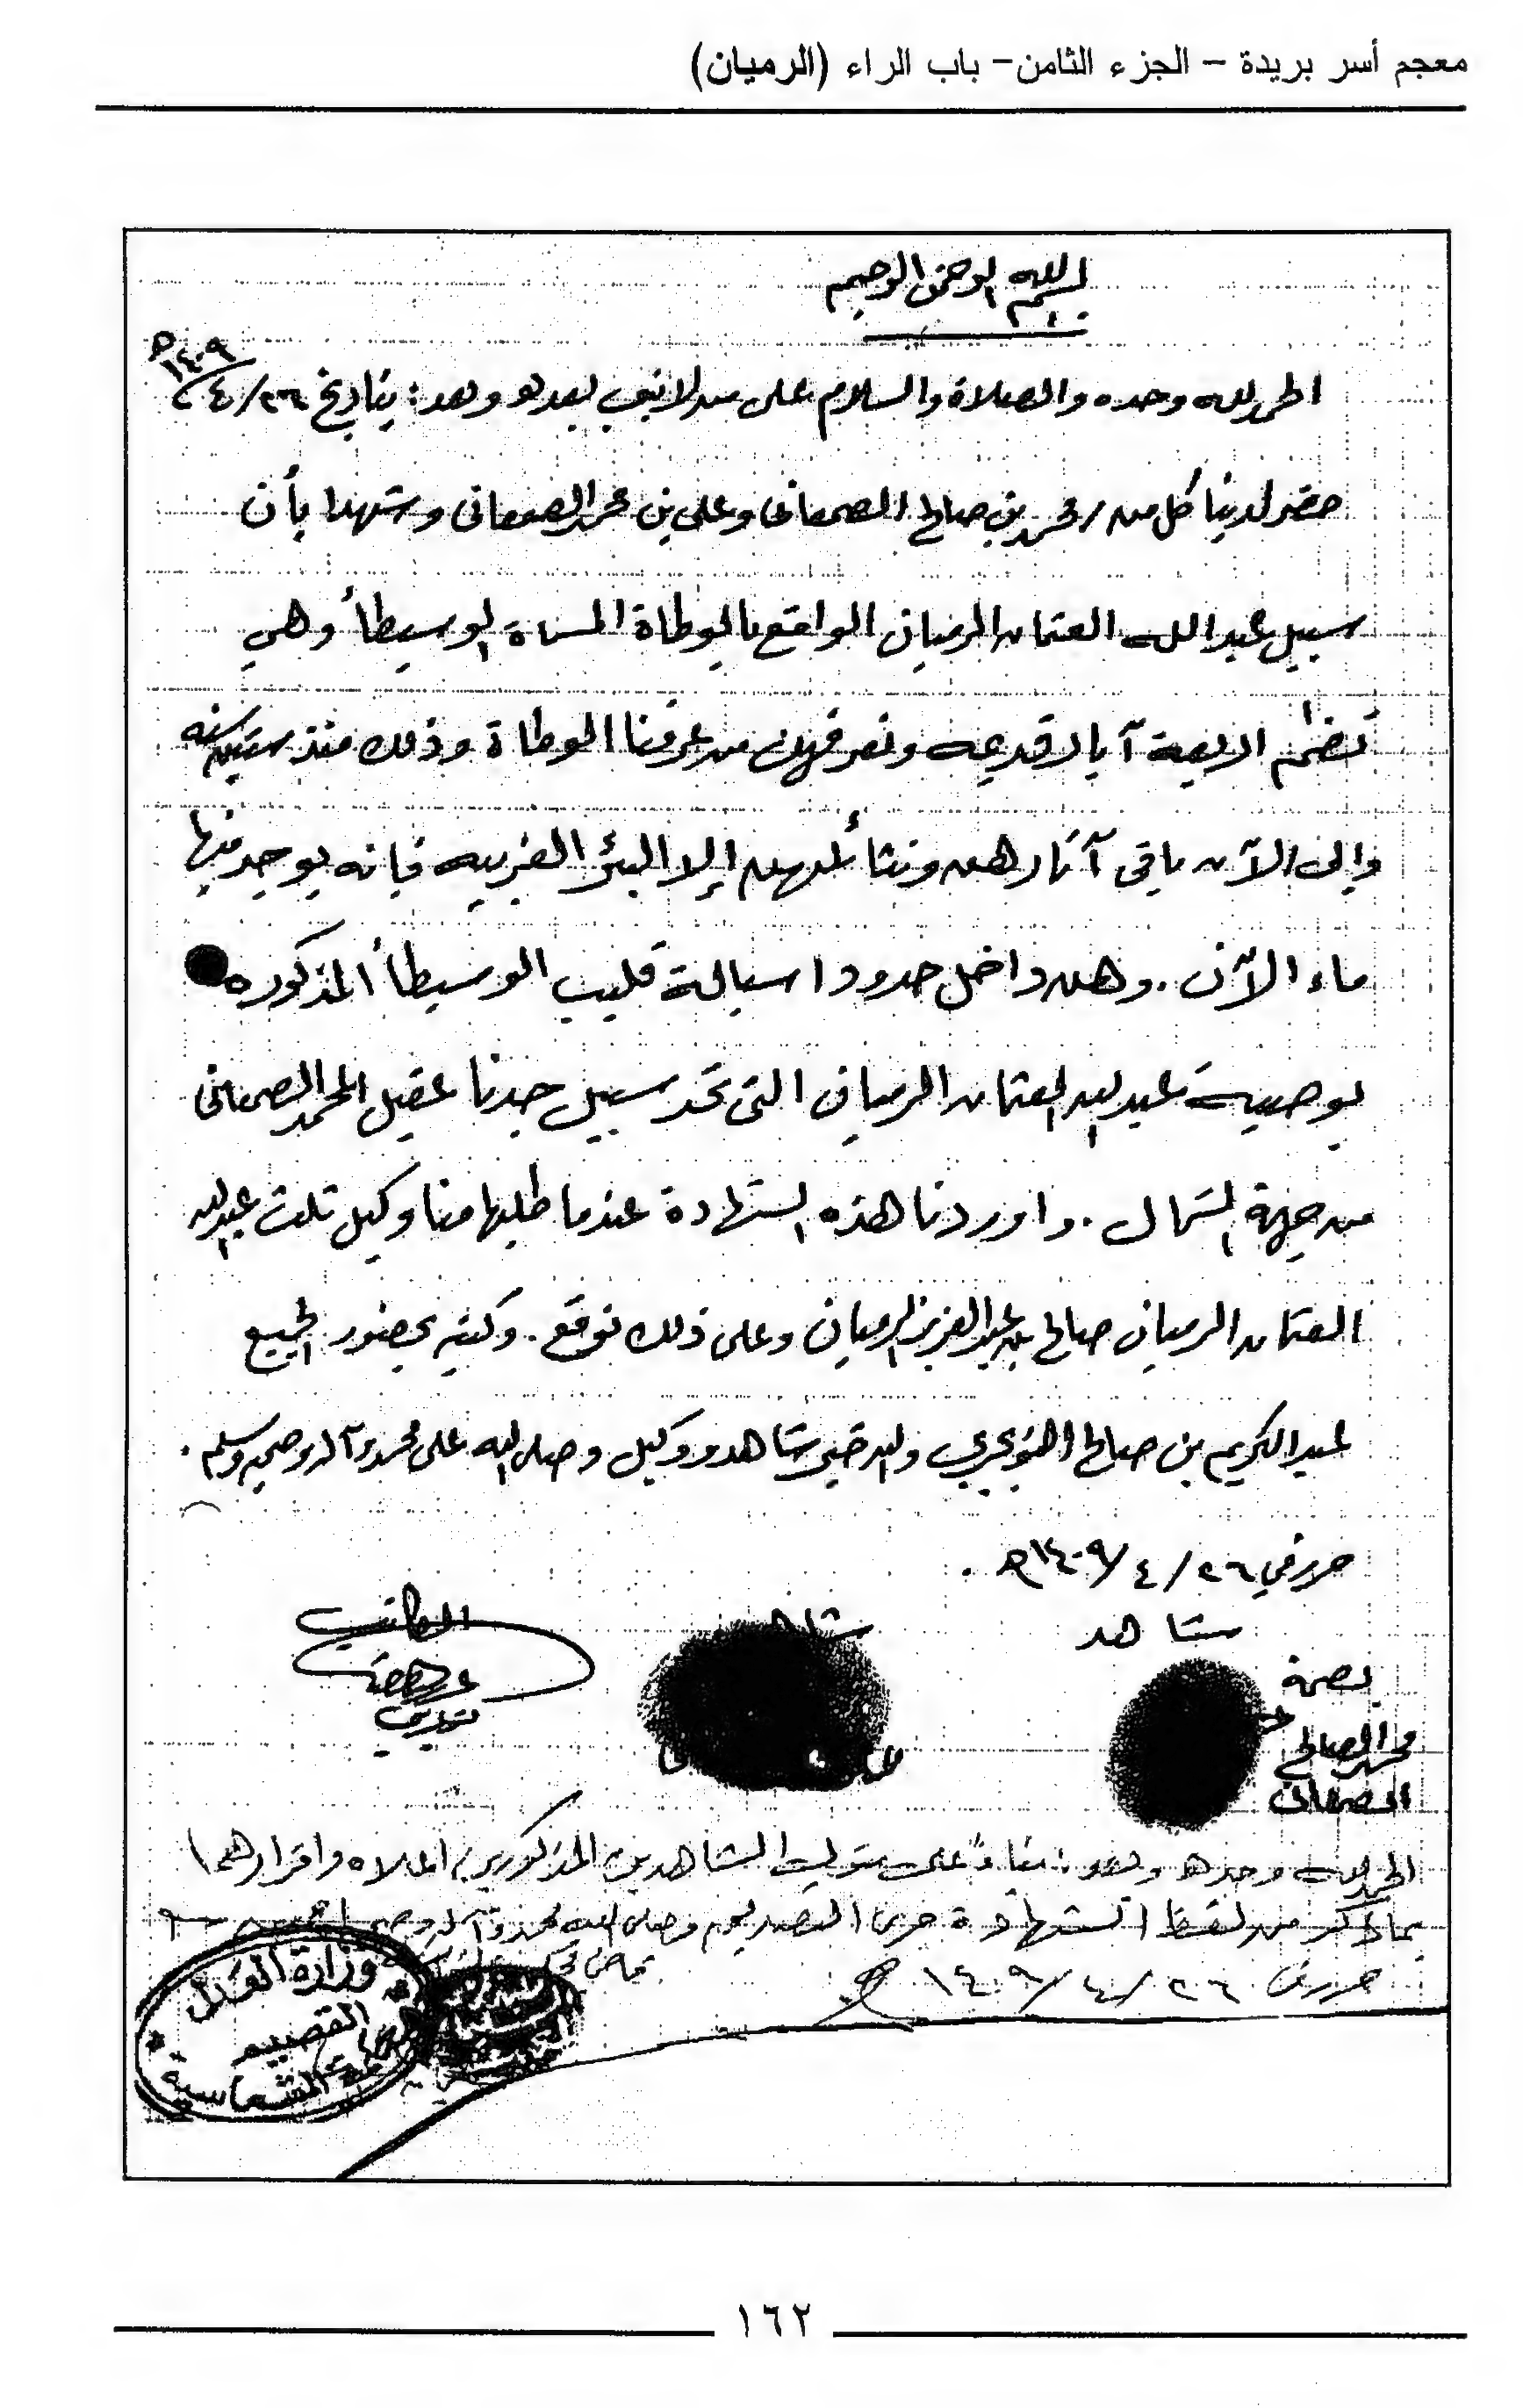 معجم أسر بريدة – الجزء الثامن – باب الراء (الرميان)
بسم الله الرحمن الرحيم
الحمد لله وحده والصلاة والسلام على من لا نبي بعده وبعد: بتاريخ ٢٦/٤/١٤٠٩هـ
حضر لدينا كل من / محمد بن صالح الصمعاني وعلي بن محمد الصمعاني وشهدا بأن
سبيل عبدالله العثمان الرميان الواقع بالوطاة المسماة الوسيطأ وهي
تضم اربعة آبار قديمه ونعرفهن من عرفنا الوطاة وذلك منذ ستين سنه
وإلى الآن باقي آثارهن إلا البئر الغربيه فإنه يوجد فيها
ماء الآن . وهن داخل حدود اسبالة قليب الوسيطأ المذكوره
بوصية عبدالله العثمان الرميان التي تحد سبيل جدنا عقيل المحمد الصمعاني
من جهة الشمال . واوردنا هذه الشهادة عندما طلبها منا وكيل ثلث عبدالله
العثمان الرميان صالح بن عبدالعزيز الرميان وعلى ذلك نوقع . وكتبه بحضور الجميع
عبدالكريم بن صالح التويجري والله خير شاهد ووكيل وصلى الله على محمد وآله وصحبه وسلم .
حرر في ٢٦/٤/١٤٠٩هـ .
شاهد شاهد الكاتب
بصمة
محمد الصالح
الصمعاني
الحمد لله وحده وبعد : بناءً على الشاهدين المذكورين اعلاه واقرارهما
بما ذكر من لفظ الشهادة جرى التصديق وصلى الله محمد وآله وصحبه
حرر في ٢٦/٤/١٤٠٩هـ
وزارة العدل
القصيم
الشماسية
١٦٢